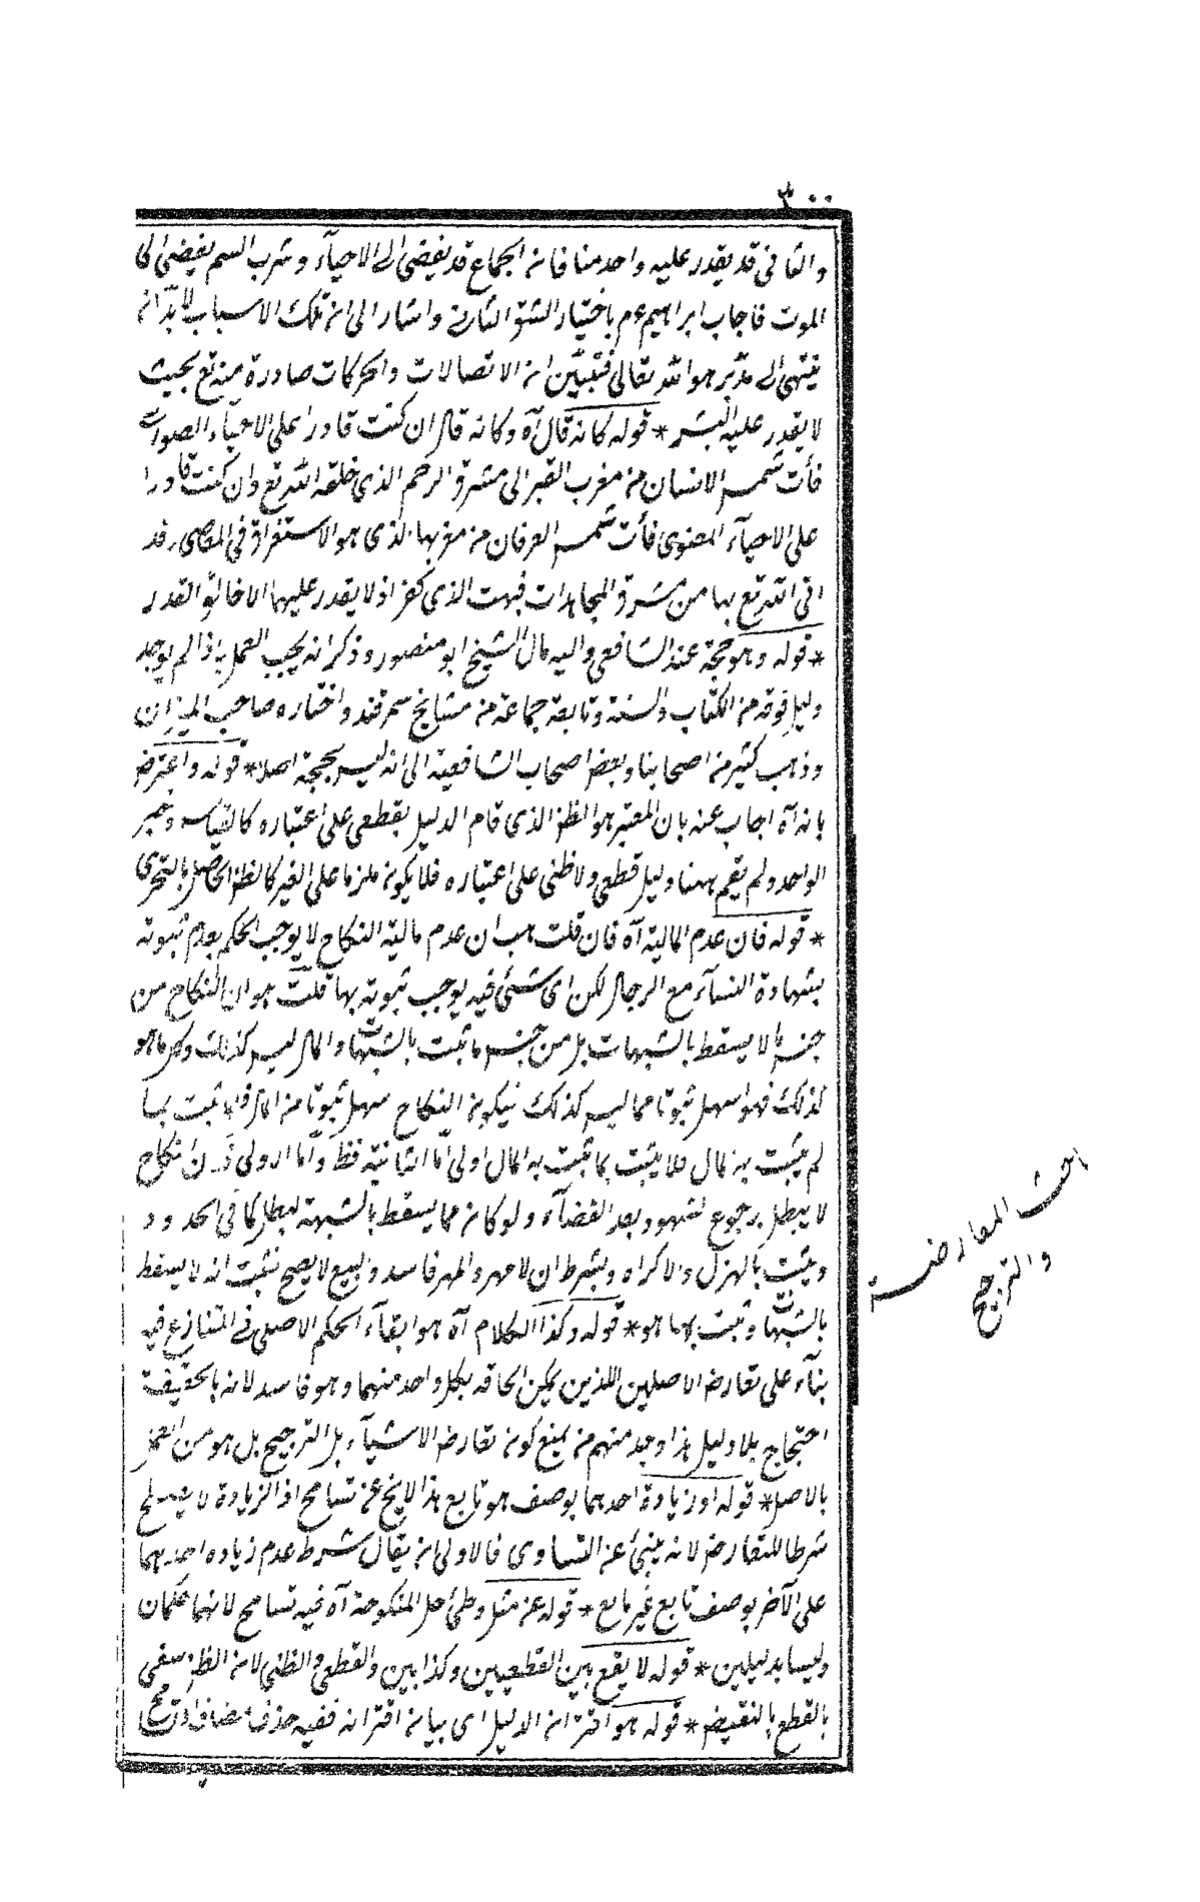 ٣٠٠
والثانى قد يقدر عليه واحد منا فان الجماع قد يفضى الى الاحيآء وشرب السم يفيضى الى
الموت فاجاب ابراهيم عم باختيار الشق الثانى واشار الى ان تلك الاسباب لابد ان
ينتهى الى مدبر هو الله تعالى فتبين ان الاتصالات والحركات صادرة منه تع بحيث
لا يقدر عليه البشر * قوله كانه قال آه وكانه قال ان كنت قادرا على الاحيآء الصورى
فأت شمس الانسان من مغرب القبر الى مشرق الرحم الذى خلقه الله تع وان كنت قادرا
على الاحيآء المعنوى فأت شمس العرفان من مغربها الذى هو الاستغراق فى المعاصى فقد
اتى الله تع بها من مشرق المجاهدات فبهت الذى كفر اذ لا يقدر عليها الا خالق القدر
* قوله وهو حجة عند الشافعى واليه مال الشيخ ابو منصور وذكر انه يجب العمل به اذا لم يوجد
دليل فوقه من الكتاب والسنة وتابعه جماعة من مشايخ سمرقند واختاره صاحب الميزان
وذهب كثير من اصحابنا وبعض اصحاب الشافعية الى انه ليس بحجة اصلا * قوله واعترض
بانه آه اجاب عنه بان المعتبر هو الظن الذى قام الدليل بقطعى على اعتباره كالقياس وخبر
الواحد ولم يقم ههنا دليل قطعى ولا ظنى على اعتباره فلا يكون ملزما على الغير كالظن الحاصل بالتحرى
* قوله فان عدم المالية آه فان قلت هب ان عدم مالية النكاح لا يوجب الحكم بعدم ثبوته
بشهادة النسآء مع الرجال لكن اى شئ فيه يوجب ثبوته بها قلت هو ان النكاح من
جنس ما لا يسقط بالشبهات بل من جنس ما ثبت بالشبهات والمال ليس كذلك وكل ما هو
كذلك فهو اسهل ثبوتا مما ليس كذلك فيكون النكاح سهل ثبوتا من المال فاذا ثبت بما
لم يثبت به المال فلا يثبت بما ثبت به المال اولى اما الثانية فظ واما الاولى فلان النكاح
لا يبطل برجوع الشهود بعد القضآء ولو كان مما يسقط بالشبهة لبطل كما فى الحدود
ويثبت بالهزل والاكراه وبشرط ان لا مهر والمهر فاسد والبيع لا يصح فثبت انه لا يسقط
بالشبهات وثبت بها ما هو * قوله وكذا الكلام آه هو ابقآء الحكم الاصلى فى المتنازع فيه
بنآء على تعارض الاصلين اللذين يمكن الحاقه بكل واحد منهما وهو فاسد لانه بالحقيقة
احتجاج بلا دليل هذا وجد منهم من يمنع كون تعارض الاشيآء بل الترجيح بل هو من العمل
بالاصل * قوله او زيادة احدهما بوصف هو تابع هذا لا يخ عن تسامح اذ الزيادة لا يصلح
شرطا للتعارض لانه ينبئ عن التساوى فالاولى ان يقال شرط عدم زيادة احديهما
على الآخر بوصف تابع غير مانع * قوله عن مثل وطئ حل المنكوحة آه فيه تسامح لانهما حكمان
وليسا بدليلين * قوله لا يقع بين القطعيين وكذا بين القطعى والظنى لان الظن ينفى
بالقطع بالنقيض * قوله هو اقتران الدليل اى بيان اقترانه ففيه حذف مضاف
ابحث المعارضة
والترجيح